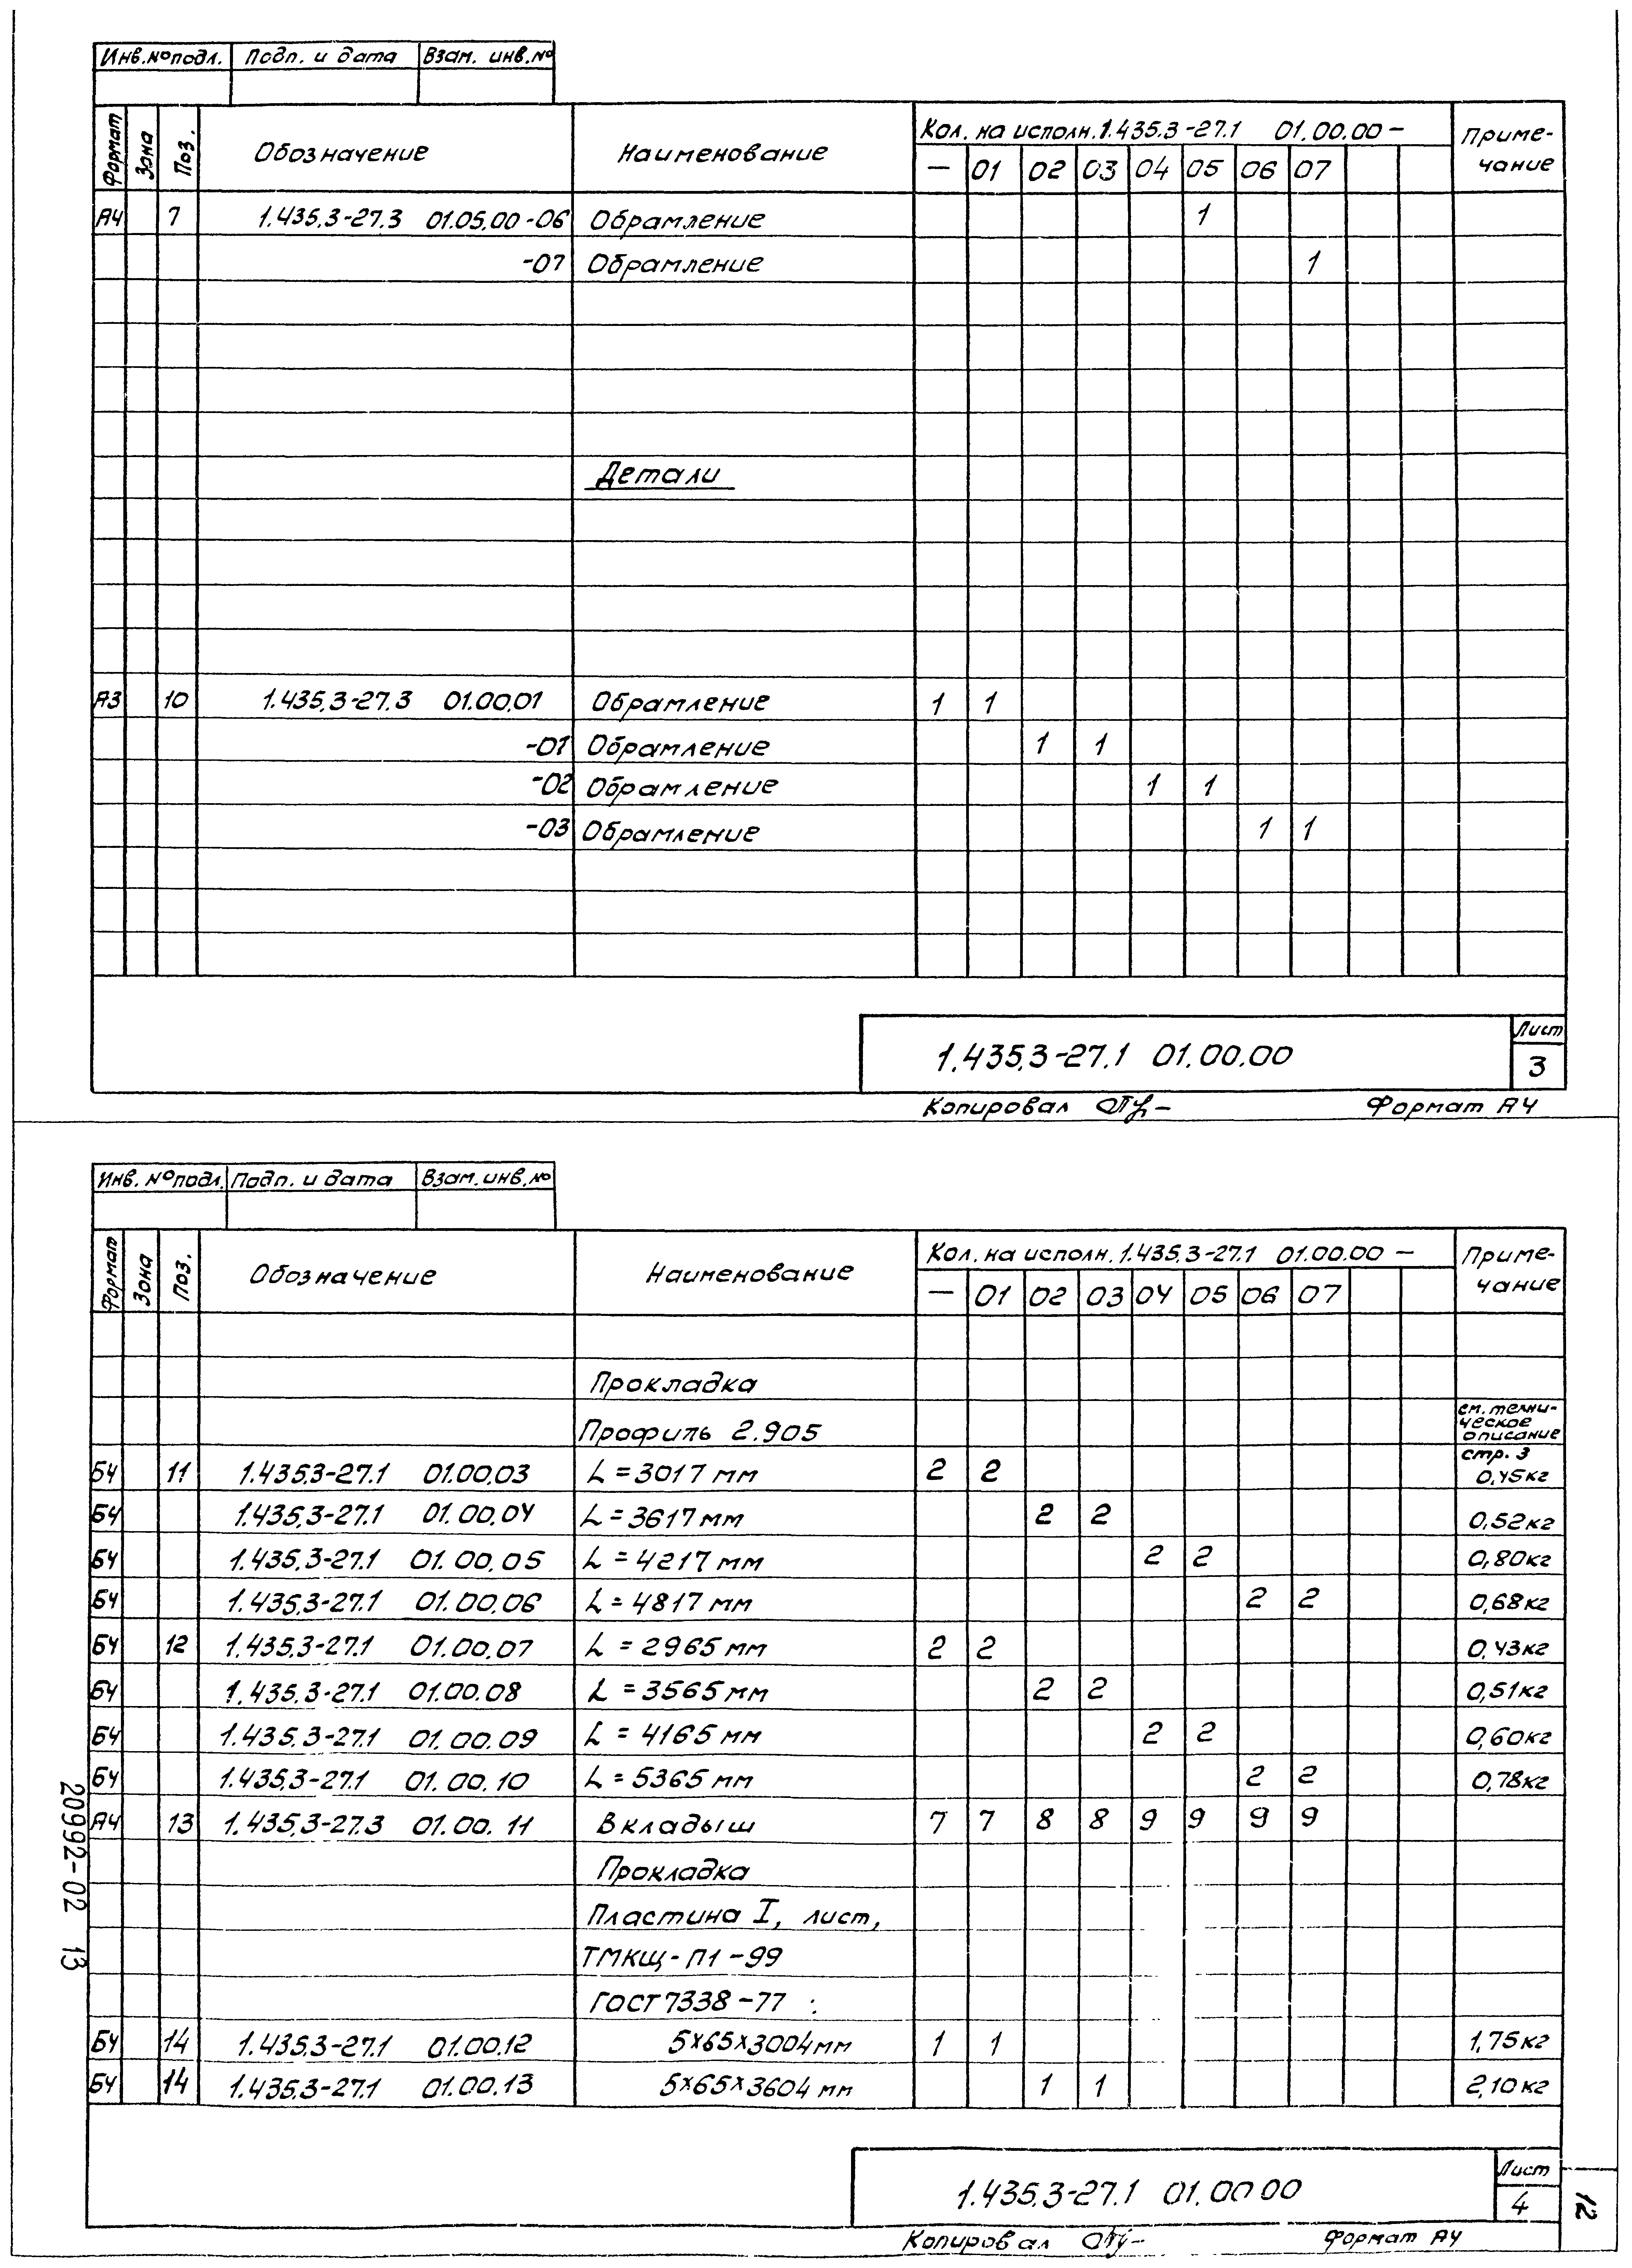 Инв.№подл. Подп. и дата Взам. инв.№
Формат Зона Поз. Обозначение Наименование Кол. на исполн. 1.435.3-27.1 01.00.00 — Приме-
— 01 02 03 04 05 06 07 чание
А4 7 1.435.3-27.3 01.05.00-06 Обрамление 1
-07 Обрамление 1
Детали
А3 10 1.435.3-27.3 01.00.01 Обрамление 1 1
-01 Обрамление 1 1
-02 Обрамление 1 1
-03 Обрамление 1 1
Лист
1.435.3-27.1 01.00.00 3
Копировал Формат А4
Инв. №подл. Подп. и дата Взам. инв.№
Формат Зона Поз. Обозначение Наименование Кол. на исполн. 1.435.3-27.1 01.00.00 — Приме-
— 01 02 03 04 05 06 07 чание
Прокладка
Профиль 2.905 см. техни-
ческое
описание
стр. 3
БЧ 11 1.435.3-27.1 01.00.03 L = 3017 мм 2 2 0,45кг
БЧ 1.435.3-27.1 01.00.04 L = 3617 мм 2 2 0,52кг
БЧ 1.435.3-27.1 01.00.05 L = 4217 мм 2 2 0,80кг
БЧ 1.435.3-27.1 01.00.06 L = 4817 мм 2 2 0,68кг
БЧ 12 1.435.3-27.1 01.00.07 L = 2965 мм 2 2 0,43кг
БЧ 1.435.3-27.1 01.00.08 L = 3565 мм 2 2 0,51кг
БЧ 1.435.3-27.1 01.00.09 L = 4165 мм 2 2 0,60кг
БЧ 1.435.3-27.1 01.00.10 L = 5365 мм 2 2 0,78кг
А4 13 1.435.3-27.3 01.00.11 Вкладыш 7 7 8 8 9 9 9 9
Прокладка
Пластина I, лист,
ТМКЩ-П1-99
ГОСТ 7338-77 :
БЧ 14 1.435.3-27.1 01.00.12 5х65х3004мм 1 1 1,75кг
БЧ 14 1.435.3-27.1 01.00.13 5х65х3604мм 1 1 2,10кг
20992-02 13
Лист
1.435.3-27.1 01.00 00 4
12
Копировал Формат А4